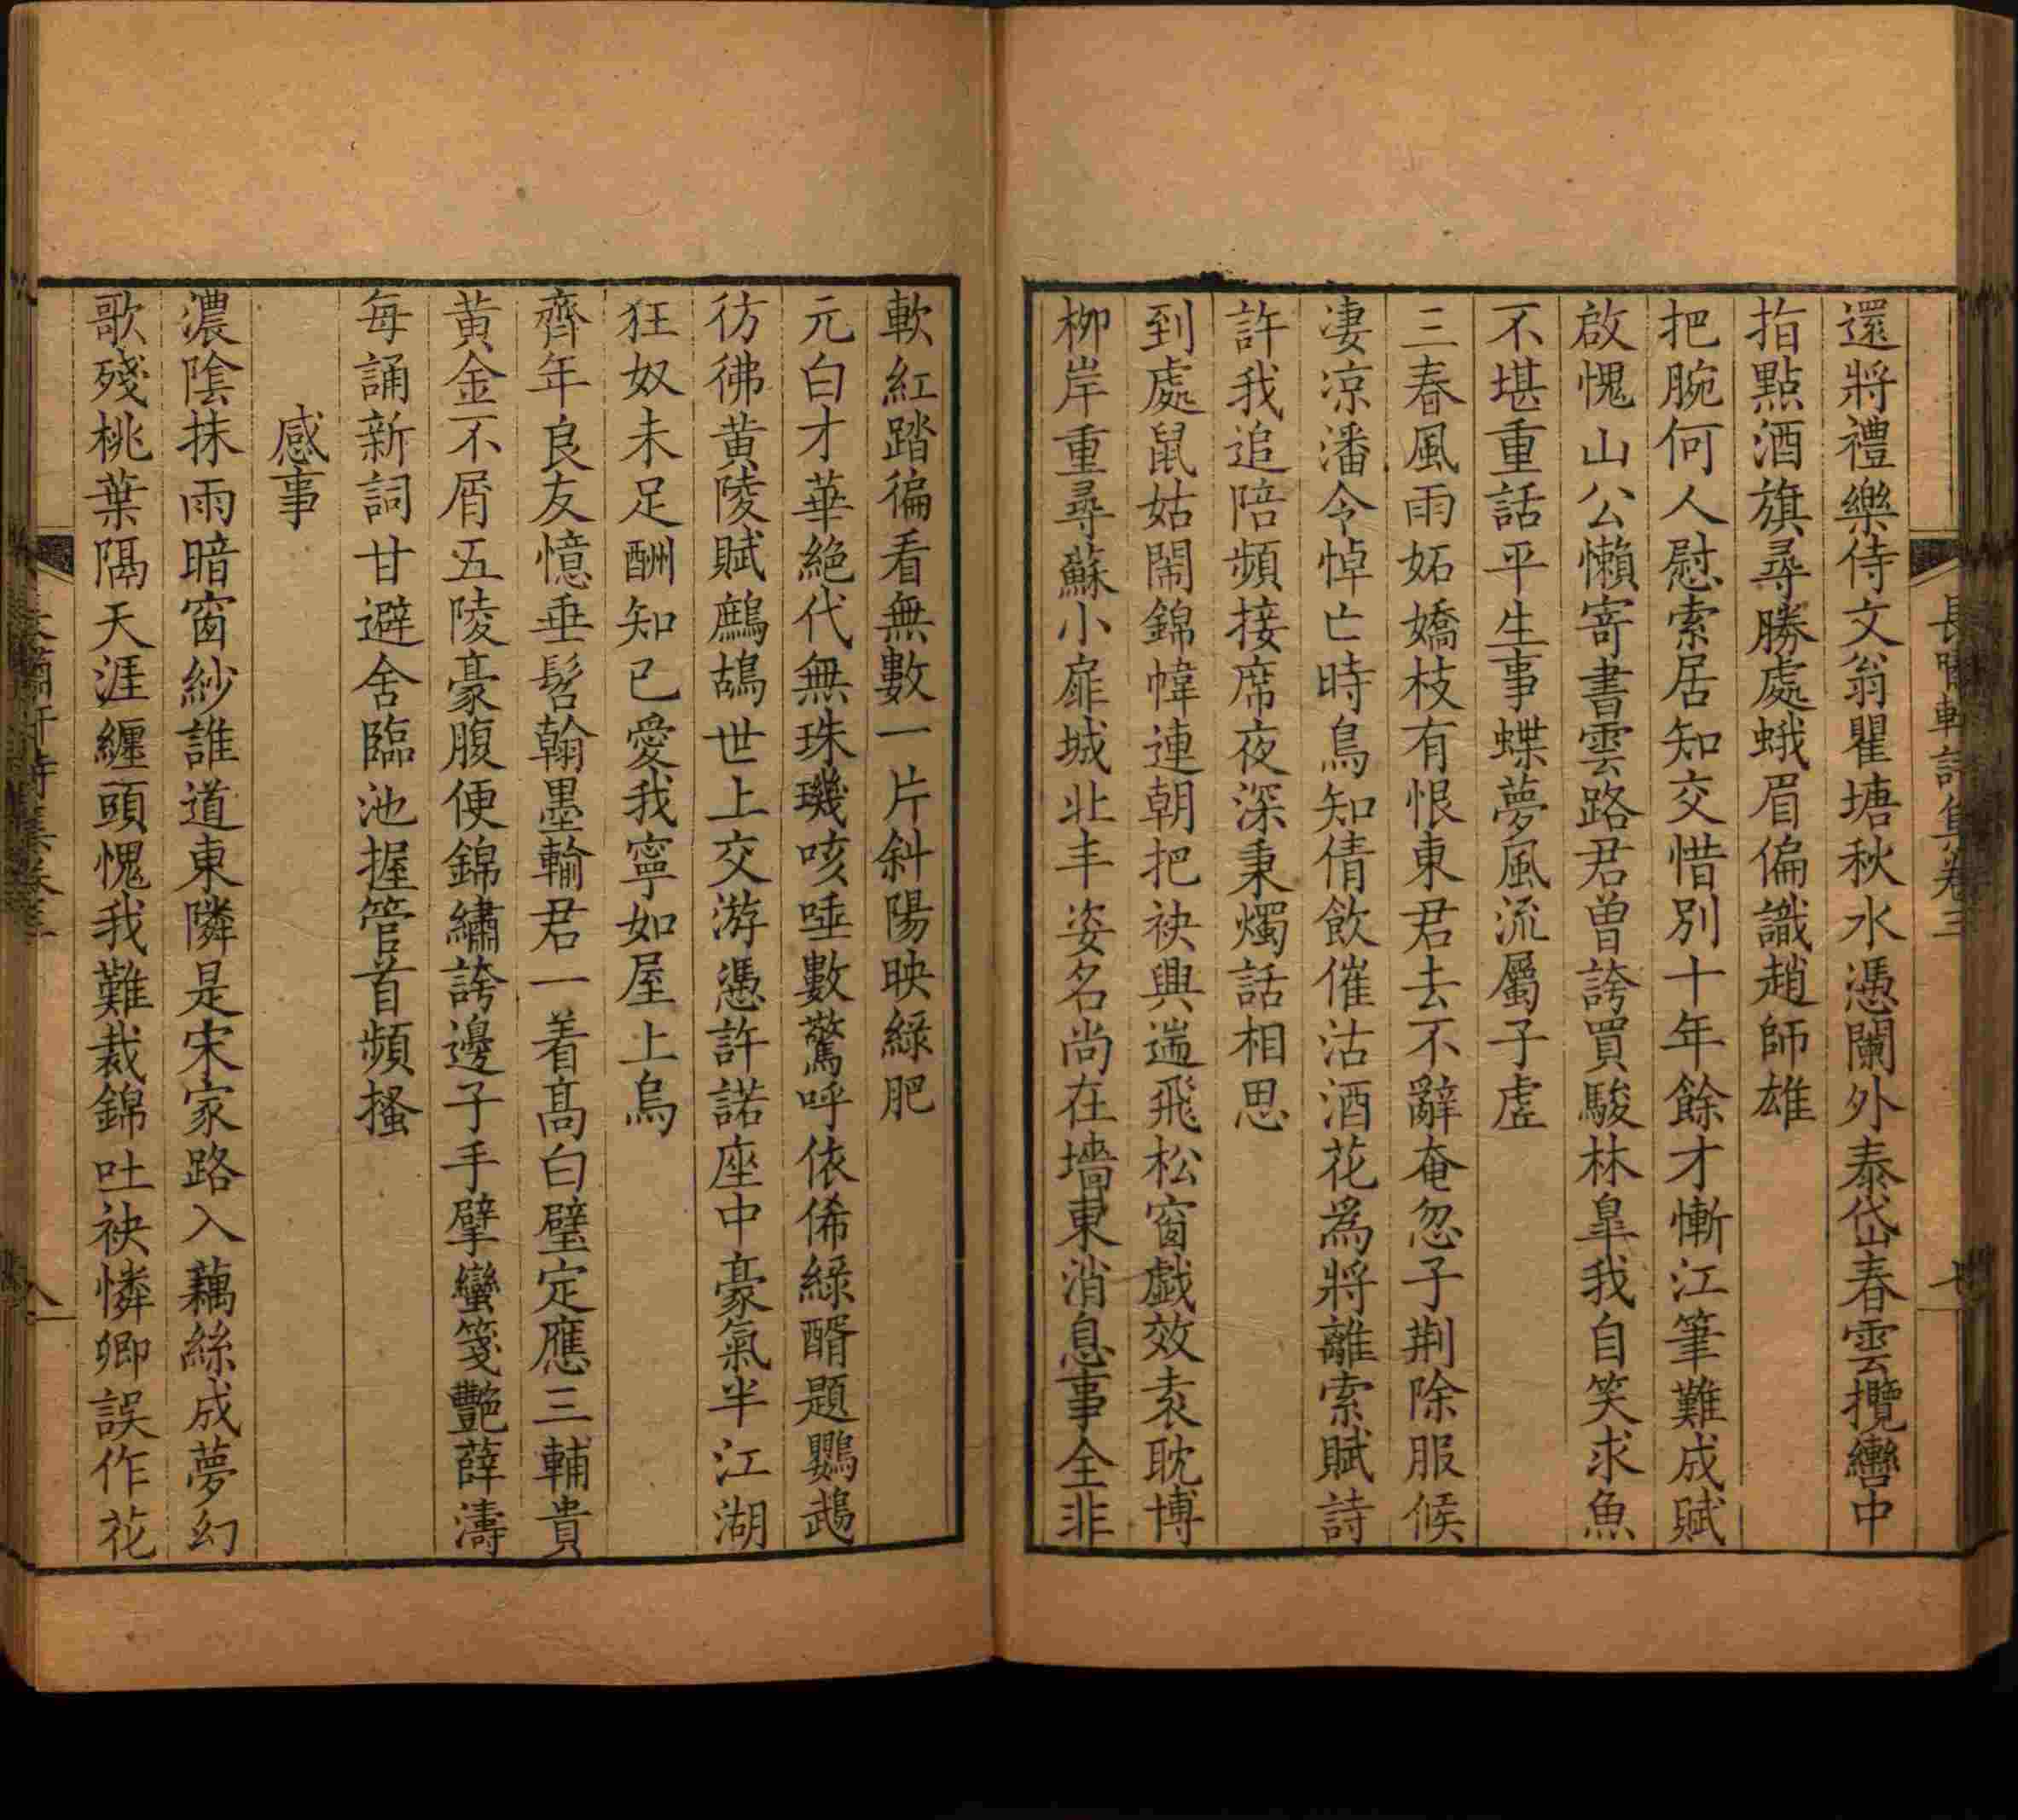 還將禮樂侍文翁瞿塘秋水憑闌外泰岱春雲攬轡中
指點酒旗尋勝處蛾眉偏識趙師雄
把腕何人慰索居知交惜別十年餘才慚江筆難成賦
啟愧山公懶寄書雲路君曾誇買駿林臯我自笑求魚
不堪重話平生事蝶夢風流屬子虛
三春風雨妬嬌枝有恨東君去不辭奄忽子荆除服候
淒凉潘令悼亡時鳥知倩飲催沽酒花爲將離索賦詩
許我追陪頻接席夜深秉燭話相思
到處鼠姑鬧錦幃連朝把袂興遄飛松窗戲效袁耽博
柳岸重尋蘇小扉城北丰姿名尚在墻東消息事全非
軟紅踏徧看無數一片斜陽映綠肥
元白才華絕代無珠璣咳唾數驚呼依俙綠醑題鸚鵡
彷彿黃陵賦鷓鴣世上交游憑許諾座中豪氣半江湖
狂奴未足酬知己愛我寧如屋上烏
齊年良友憶垂髫翰墨輸君一着高白璧定應三輔貴
黃金不屑五陵豪腹便錦繡誇邊子手擘蠻箋艷薛濤
每誦新詞甘避舍臨池握管首頻搔
感事
濃陰抹雨暗窗紗誰道東隣是宋家路入藕絲成夢幻
歌殘桃葉隔天涯纏頭愧我難裁錦吐袂憐卿誤作花